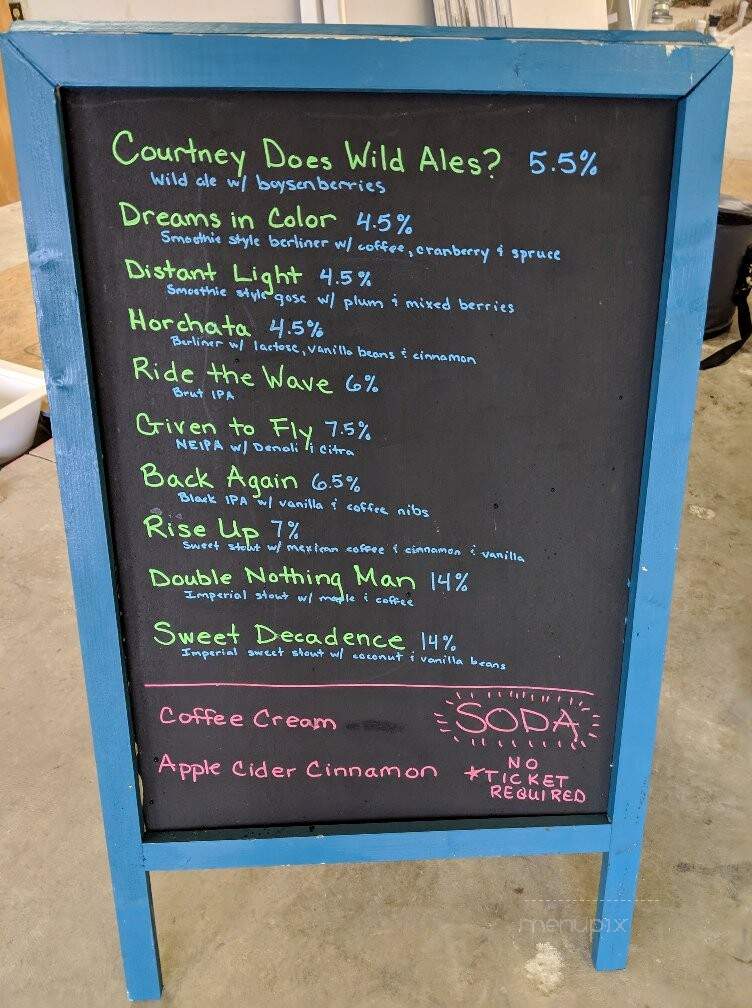 Courtney Does Wild Ales? 5.5%
Wild ale w/ boysenberries
Dreams in Color 4.5%
Smoothie style berliner w/ coffee, cranberry & spruce
Distant Light 4.5%
Smoothie style gose w/ plum & mixed berries
Horchata 4.5%
Berliner w/ lactose, vanilla beans & cinnamon
Ride the Wave 6%
Brut IPA
Given to Fly 7.5%
NEIPA w/ Denali & Citra
Back Again 6.5%
Black IPA w/ vanilla & coffee nibs
Rise Up 7%
Sweet stout w/ mexican coffee & cinnamon & vanilla
Double Nothing Man 14%
Imperial stout w/ maple & coffee
Sweet Decadence 14%
Imperial sweet stout w/ coconut & vanilla beans
Coffee Cream
SODA
Apple Cider Cinnamon
NO
*TICKET
REQUIRED
menupix